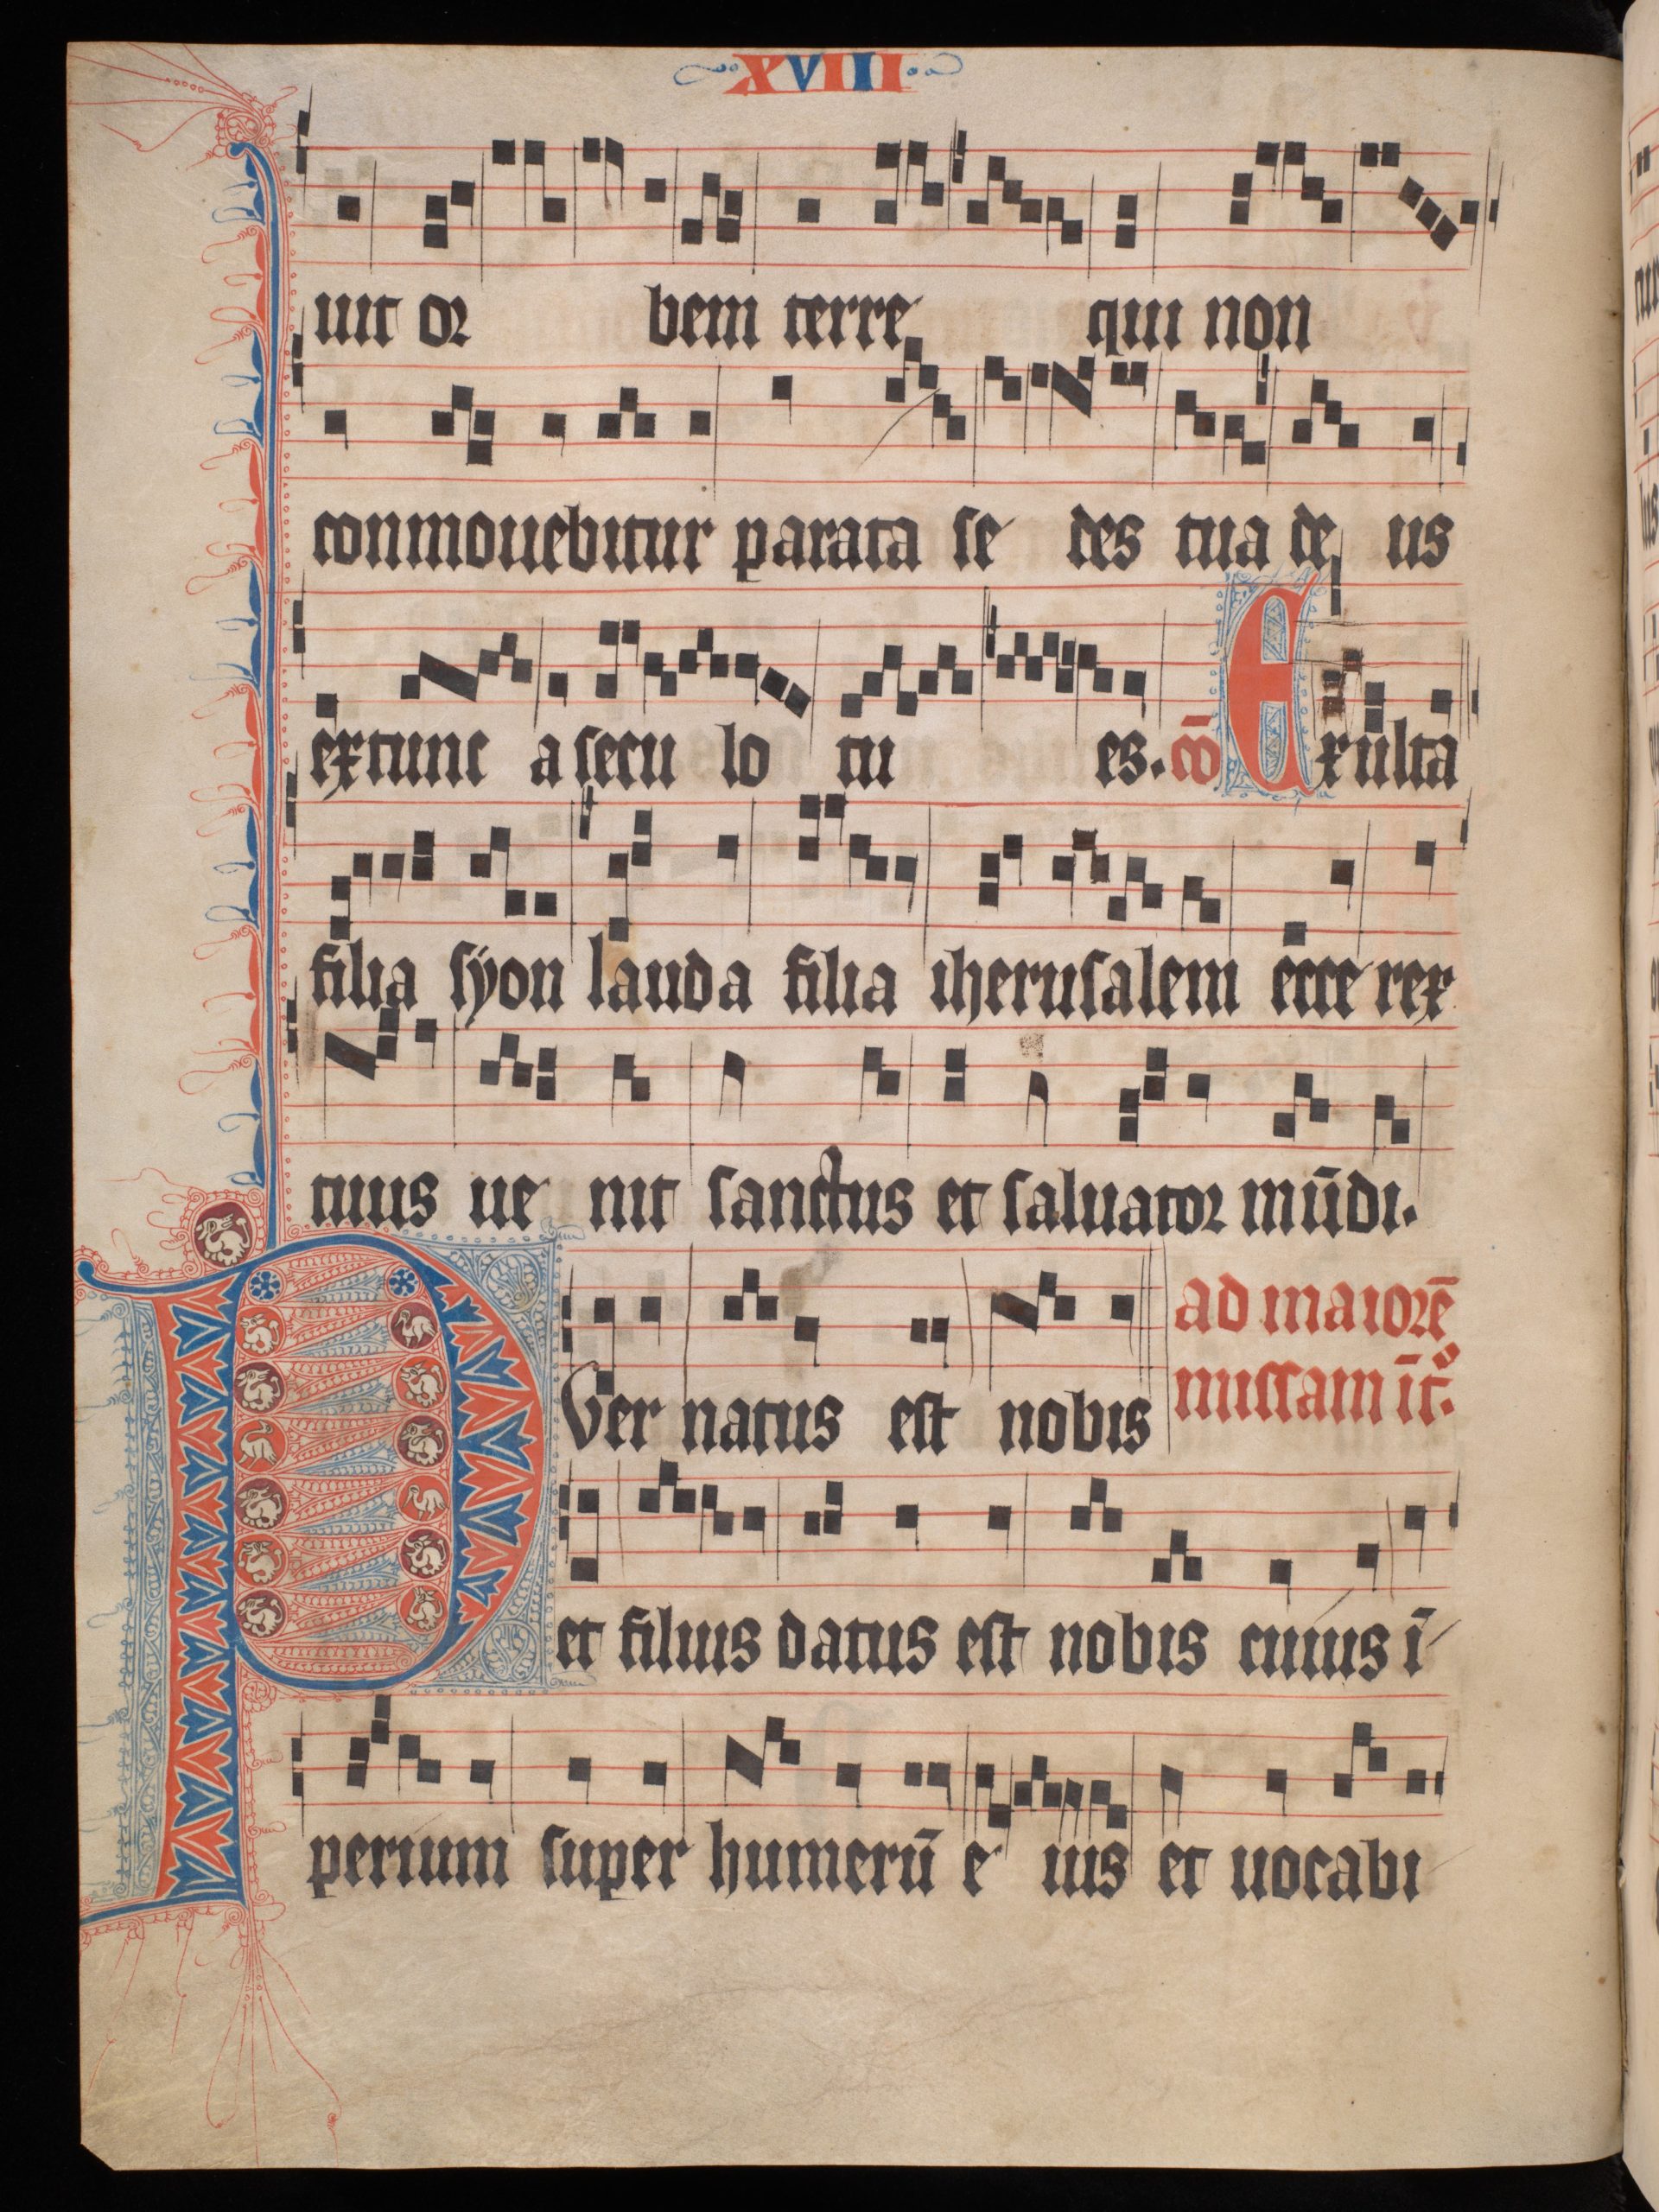 XVIIII
uit or bem terre qui non
conmouebitur parata se des tua de us
extunc a secu lo tu es. cō Exulta
filia syon lauda filia iherusalem ecce rex
tuus ue nit sanctus et saluator mūdi.
PVer natus est nobis
ad maiorē
missam īt°.
et filius datus est nobis cuius ī
perium super humerū e ius et uocabi